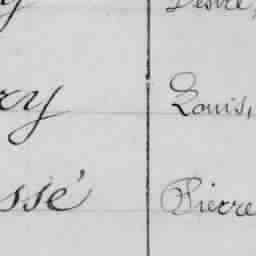 ry Louis,
ssé Pierre